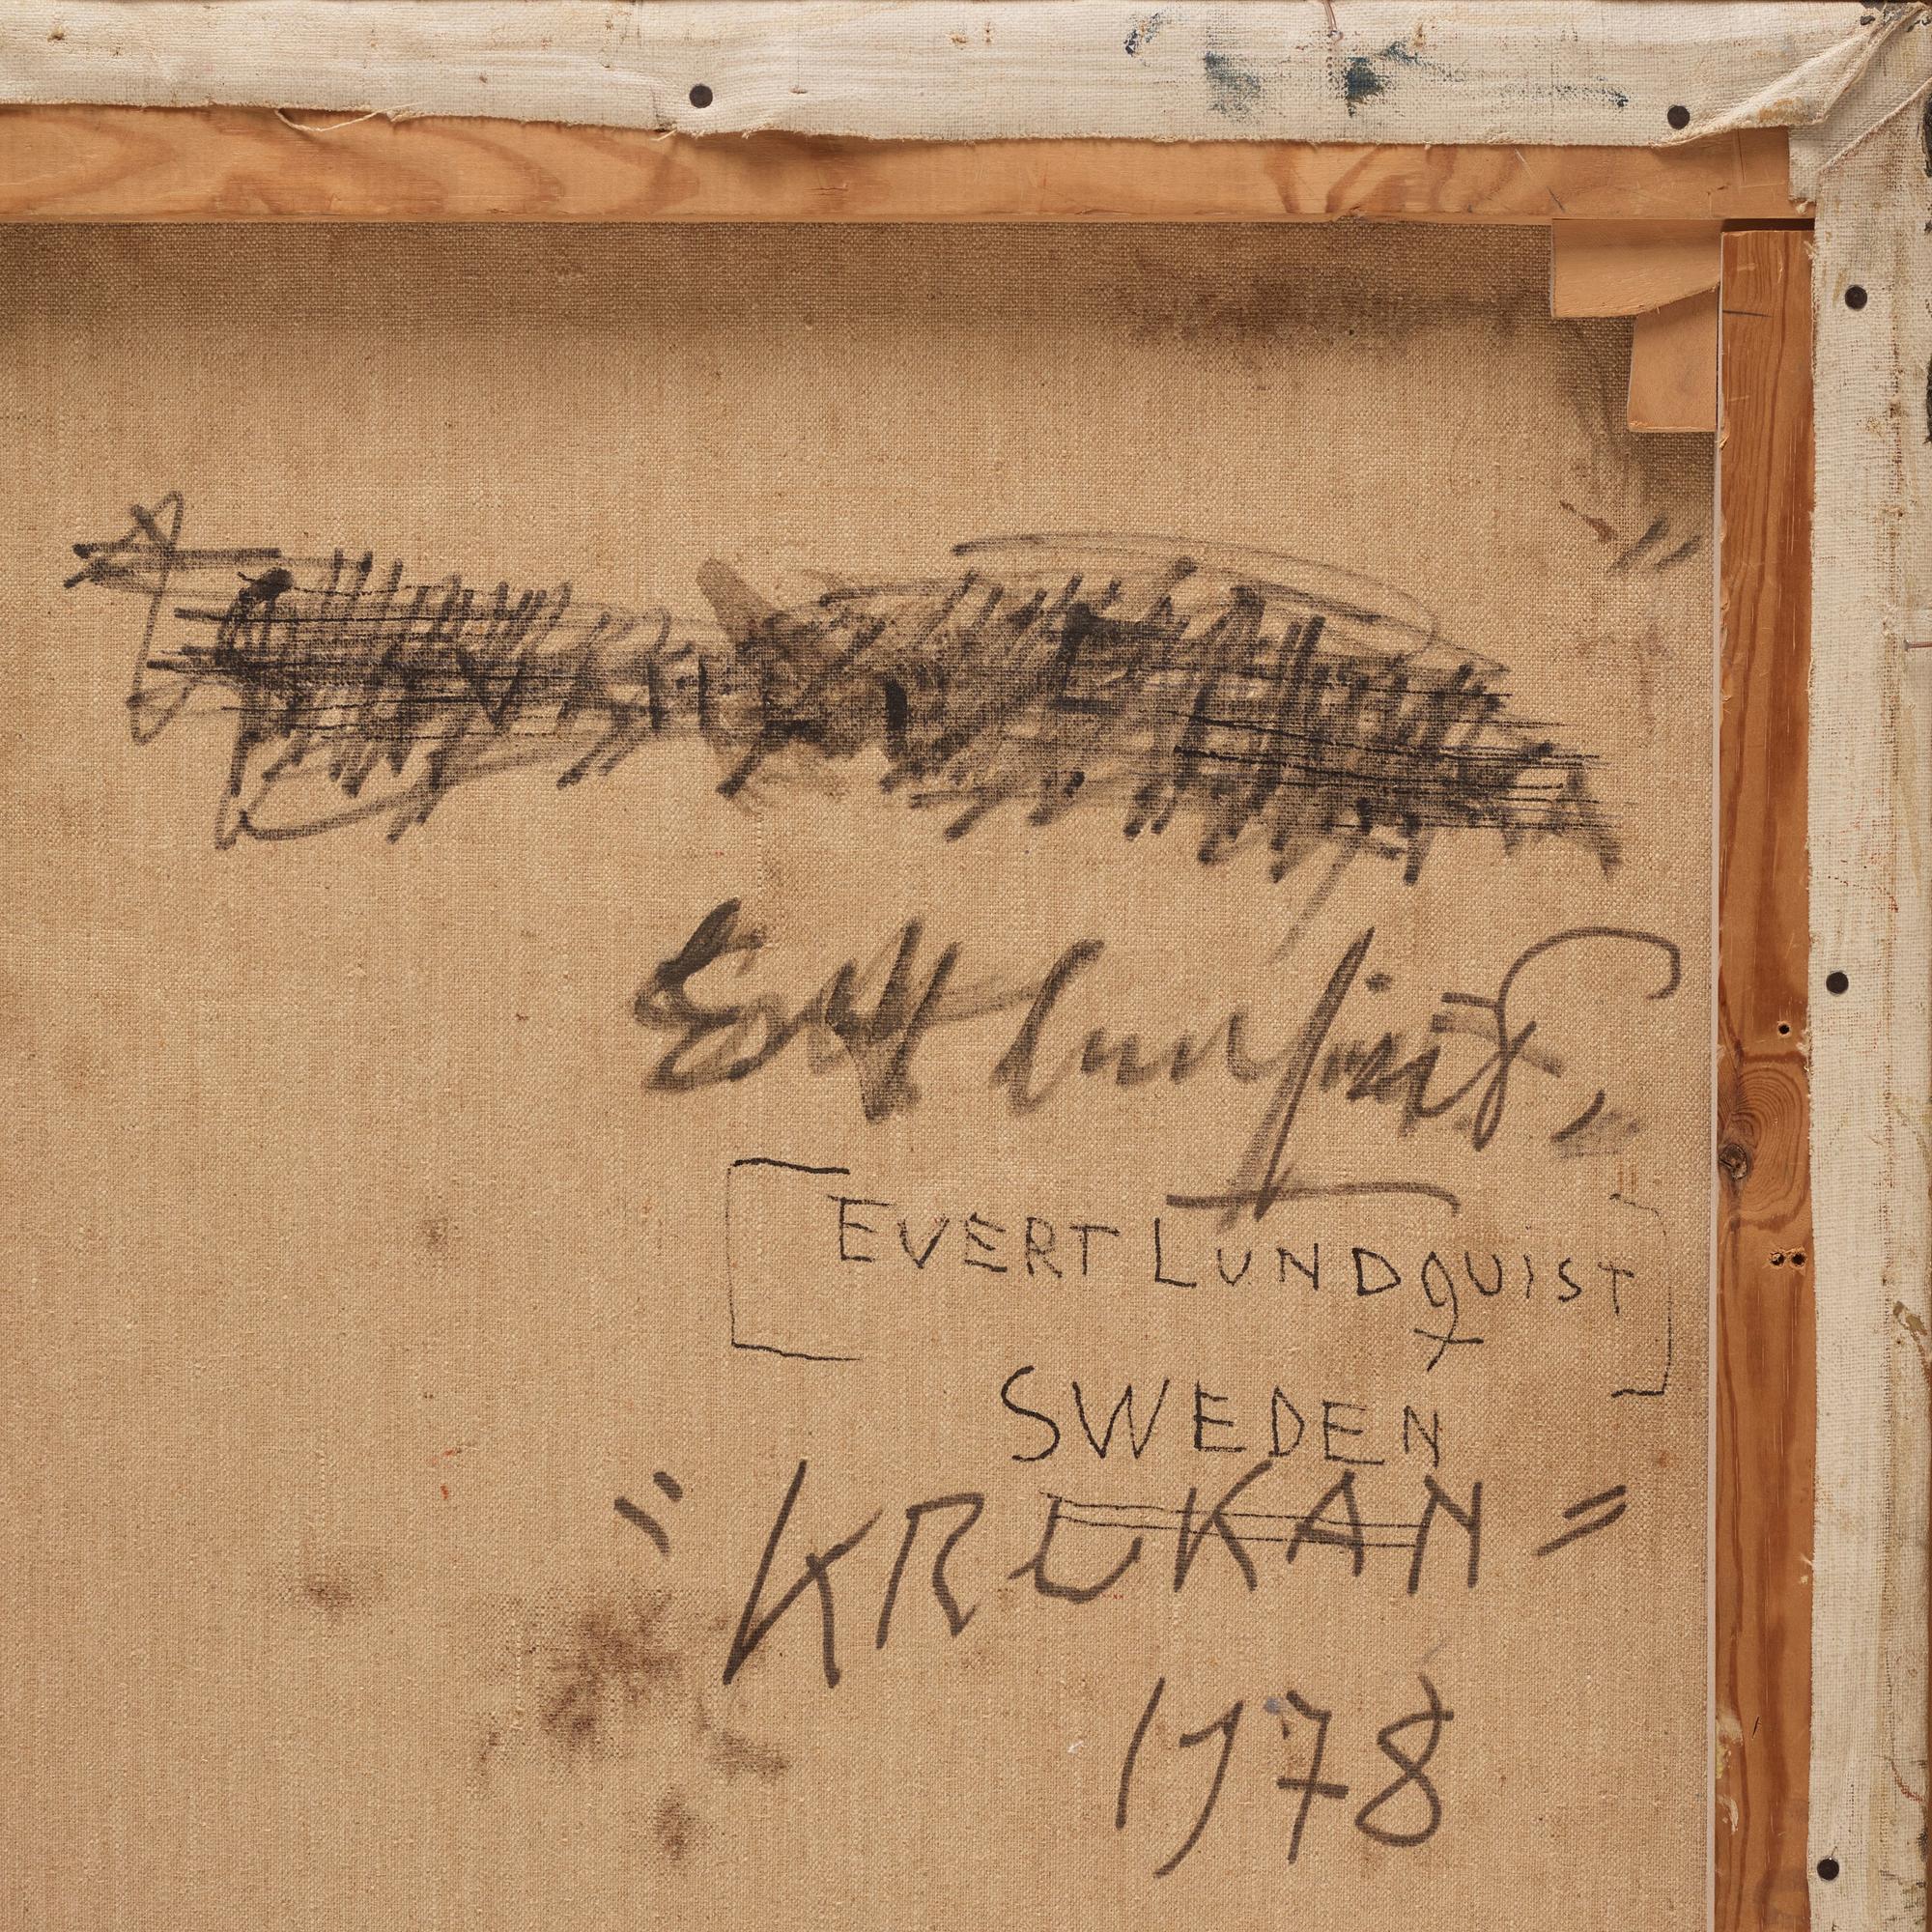 Evert Lundquist
[EVERT LUNDQUIST]
SWEDEN
"KRUKAN"
1978